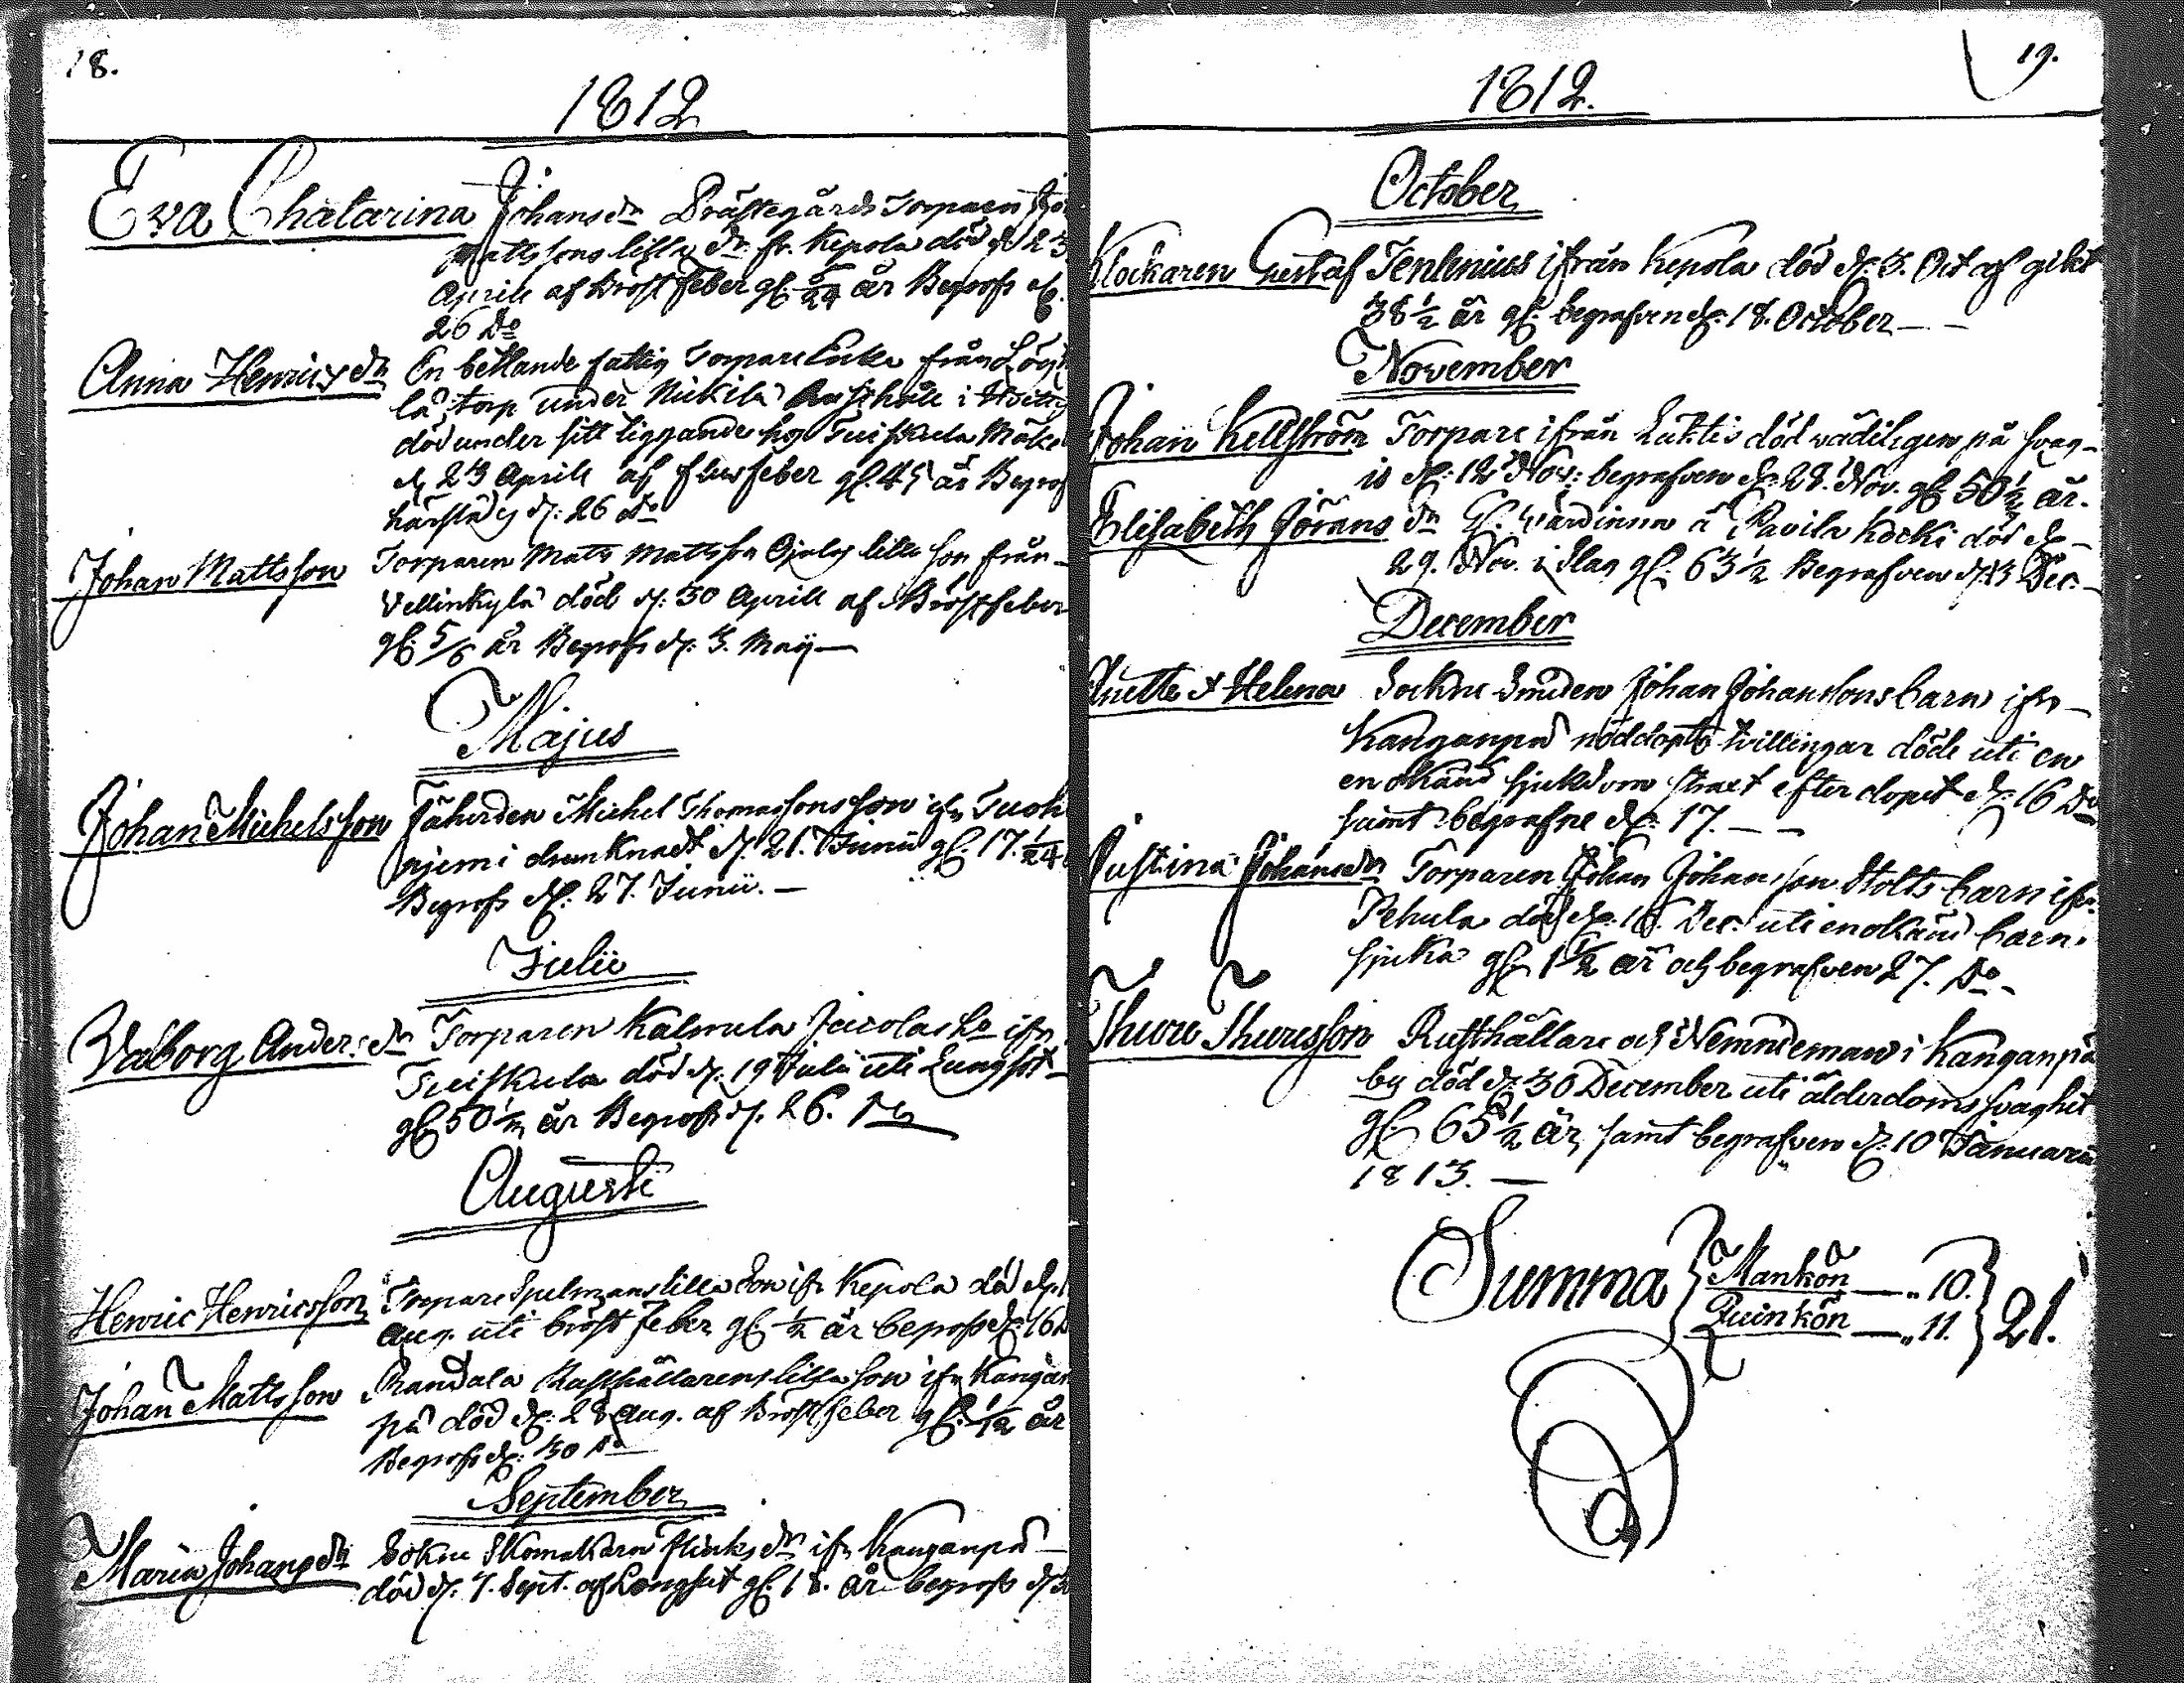 18.
1812
Eva Chatarina Johans dr Prästegårds Torparen Joh
Mattssons lilla dr. fr. Kepola död d 23
Aprill af Bröstfeber gl. 5/24 år Begrofs d.
26 Do
Anna Henrics dr En betlande fattig Torpare Enka från
lä torp under Nickilä Rusthåll i
död under sitt liggande hos Tuiskula
d. 23 Aprill af flussfeber gl. 45 år Begrof
härstädes d: 26 do
Johan Mattsson Torparen Matts Mattsson Ojalas lilla son från
Vellinkylä död d: 30 Aprill af Bröstfeber
gl. 5/6 år Begrofs d. 3. Maij
Majus
Johan Michelsson Michel Thomassons son ifn
drunknadt d. 21. Junii gl. 17. 1/24
Begrofs d. 27. Junii.
Julii
Valborg Anders dr Torparen Kalmula Jacolas ho ifn
Tuiskula död d. 19 Julii uti Lungsot
gl 50 1/2 år Begrofs d. 26. Do
Augusti
Henric Henricsson Torpare Spelmans lilla Son ifr Kepola död d.
Aug. uti bröst feber gl 1/2 år begrofs d. 16 D
Johan Mattsson Randala Rusthållarens lilla son ifn Kangan
pä död d. 28 Aug. af Bröstfeber gl. 1/2 år
Begrofs d: 30 Do
September
Maria Johans dr Sokne Skomakarn Flinks dr ifn Kanganpä
död d. 7. Sept. af Lungsot gl. 18. år begrofs d
19.
1812.
October
Klockaren Gustaf Tenlenius ifrån Kepola död d. 3. Oct af gikt
38 1/2 år gl. begrafven d. 18. October
November
Johan Kellström Torpare ifrån död vådeligen på svag
is d. 12 Nov: begrafven d. 28. Nov. gl 50 1/2 år.
Elisabeth Jörans dr Gl. värdinna å Ravila Kocki död d.
29. Nov. i Slag gl. 63 1/2 Begrafven d. 13 Dec.
December
Anette & Helena Sockne Smeden Johan Johanssons barn ifn
Kanganpä nöddöpte tvillingar döde uti en
en okänd sjukdom straxt efter dopet d. 16 Do
samt begrafne d. 17.
Justina Johans dr Torparen Johan Johansson Stolts barn ifn
Pehula död d. 16. Dec. uti en okänd barn
sjuka gl 1 1/2 år och begrafven 27. Do
Thure Thuresson Rusthållare och Nemndeman i Kanganpä
by död d. 30 December uti ålderdoms svaghet
gl. 65 1/2 år, samt begrafven d. 10 Januarii
1813.
Summa Mankön 10.
Quinkön 11. 21.